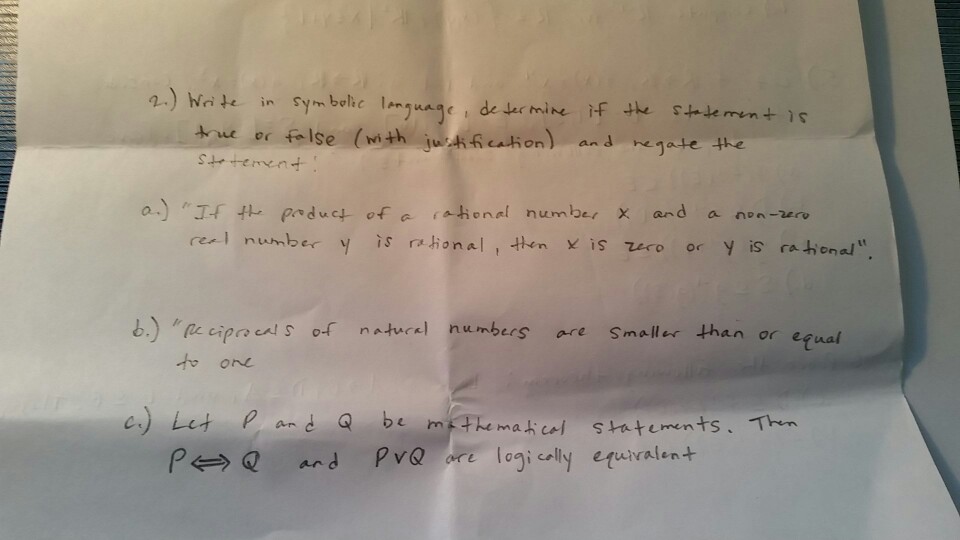 2.) Write in symbolic language, determine if the statement is
true or false (with justification) and negate the
statement:
a.) "If the product of a rational number x and a non-zero
real number y is rational, then x is zero or y is rational".
b.) "Reciprocals of natural numbers are smaller than or equal
to one
c.) Let P and Q be mathematical statements. Then
P⟺Q and P∨Q are logically equivalent